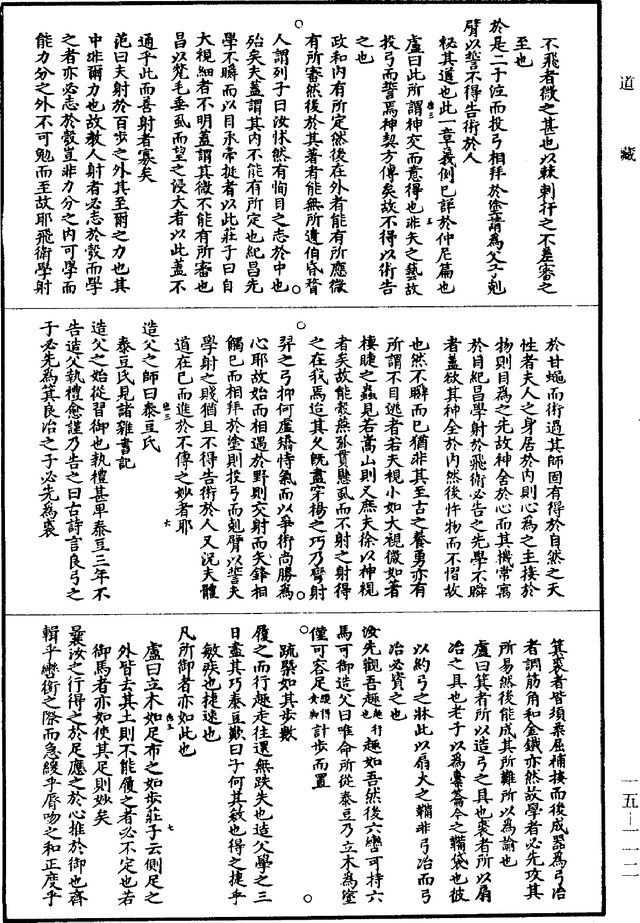 道藏
不飛者微之甚也以棘刺扞之不差審之
至也
於是二子泣而投弓相拜於塗請為父子剋
臂以誓不得告術於人
秘其道也此一章義例已詳於仲尼篇也
盧曰此所謂神交而意得也非矢之藝故
投弓而誓焉神契方傳矣故不得以術告
之也
政和內有所定然後在外者能有所應微
有所審然後於其著者能無所遺伯昏瞀
人謂列子曰汝怵然有恂目之志於中也
殆矣夫蓋謂其內不能有所定也紀昌先
學不瞬而以目承帝挺者以此莊子曰自
大視細者不明蓋謂其微不能有所審也
昌以氂毛垂虱而望之浸大者以此蓋不
通乎此而善射者寡矣
范曰夫射於百步之外其至爾之力也其
中非爾力也故教人射者必志於彀而學
之者亦必志於彀豈非力分之內可學而
能力分之外不可勉而至故耶飛衛學射
於甘蠅而術過其師固有得於自然之天
性者夫人之身居於內則心為之主接於
物則目為之先故神舍於心而其機常寓
於目紀昌學射於飛術必告之先學不瞬
者蓋欲其神全於內然後忤物而不慴故
也然不瞬而已猶非其至古之養勇亦有
所謂不目逃者若夫視小如大視微如著
棲睫之蟲見若嵩山則又庶夫徐以神視
者矣故能彀燕弧貫懸虱而不射之射得
之在我焉造其父既盡穿楊之巧乃彎射
羿之弓抑何盧矯恃氣而以爭術尚勝為
心耶故始而相遇於野則交射而矢鋒相
觸已而相拜於塗則投弓而剋臂以誓夫
學射之賤猶且不得告術於人又況夫體
道在己而進於不傳之妙者耶
造父之師曰泰豆氏
泰豆氏見諸雜書記
造父之始從習御也執禮甚卑泰豆三年不
告造父執禮愈謹乃告之曰古詩言良弓之
子必先為箕良冶之子必先為裘
箕裘者皆須柔屈補接而後成器為弓冶
者調筋角和金鐵亦然故學者必先攻其
所易然後能成其所難所以為諭也
盧曰箕者所以造弓之具也裘者所以扇
冶之具也老子以為橐籥今之鞴袋也彼
以約弓之牀此以扇火之鞴非弓冶而弓
冶必資之也
汝先觀吾趣趣行也趣如吾然後六轡可持六
馬可御造父曰唯命所從泰豆乃立木為塗
僅可容足計步而置
疏槩如其步數
履之而行趣走往還無跌失也造父學之三
日盡其巧泰豆歎曰子何其敏也得之捷乎
敏疾也捷速也
凡所御者亦如此也
盧曰立木如足布之如步莊子云側足之
外皆去其土則不能履之者心不定也若
御馬者亦如使其足則妙矣
曩汝之行得之於足應之於心推於御也齊
輯乎轡銜之際而急緩乎脣吻之和正度乎
一五-一一二